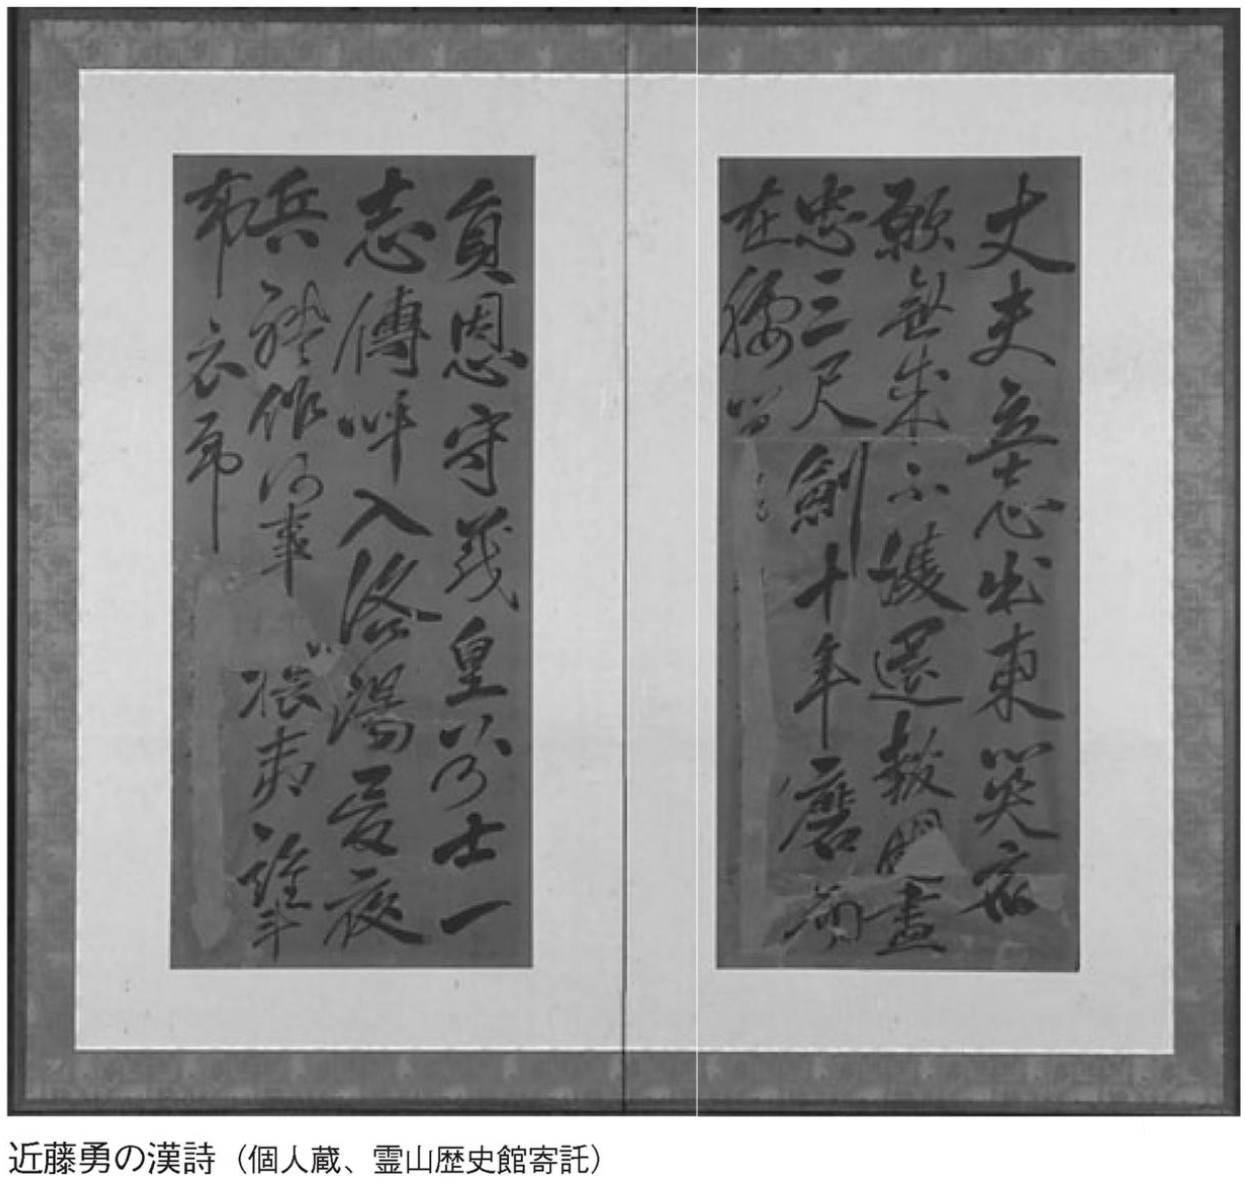 丈夫立志出東関宿
願無成不復還報國盡
忠三尺劍十年磨而
在腰間
負恩守義皇州士一
志傳呼入洛陽夜
兵談作何事 攘夷誰斗
布衣郎
近藤勇の漢詩（個人蔵、霊山歴史館寄託）